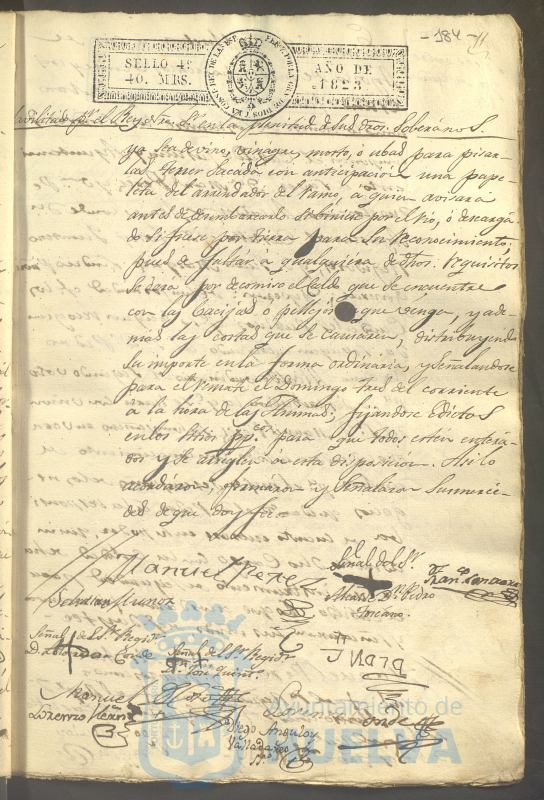 - 184 -
SELLO 4º
40. MRS.
AÑO DE
1823
el Rey en la plenitud de sus Soberanos.
ya sea de vino, vinagre, mosto, ó ubas para pisar-
las tener sacada con anticipacion una pape-
leta del arrendador del ramo, á quien avisara
antes de desembarcarlo si biniere por el rio, ó descarga
si fuese por tierra para su reconocimiento,
pues de faltar á qualquiera de dhos. requisitos
se dara por decomiso el caldo que se encuentre
con las bacijas o pellejos que venga, y ade-
mas las costas que se causaren, distribuyendo
su importe en la forma ordinaria, y señalandose
para el remate el Domingo tres del corriente
a la hora de las Animas; fijandose Edictos
en los sitios pp.cos para que todos esten entera-
dos y se arreglen á esta disposicion. Asi lo
acordaron, firmaron y señalaron sus merce-
des de que doy fee
Manuel Perez
Señal del Sr.
Alcalde Dn. Pedro
Toscano.
Sebastian Muñoz
Señal del Sr. Regidor
Señal del Sr. Regidor
Conde
Dn. Jose
Manuel
Lorenzo
Diego
Ayuntamiento de
HUELVA